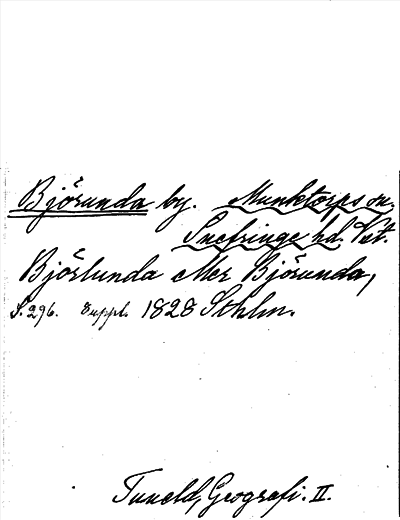 Björunda by. Munktorps sn.
Snefringe hd. Vstm.
Björlunda eller Björunda,
S. 296. Suppl. 1828 Sthlm.
Tuneld, Geografi. II.